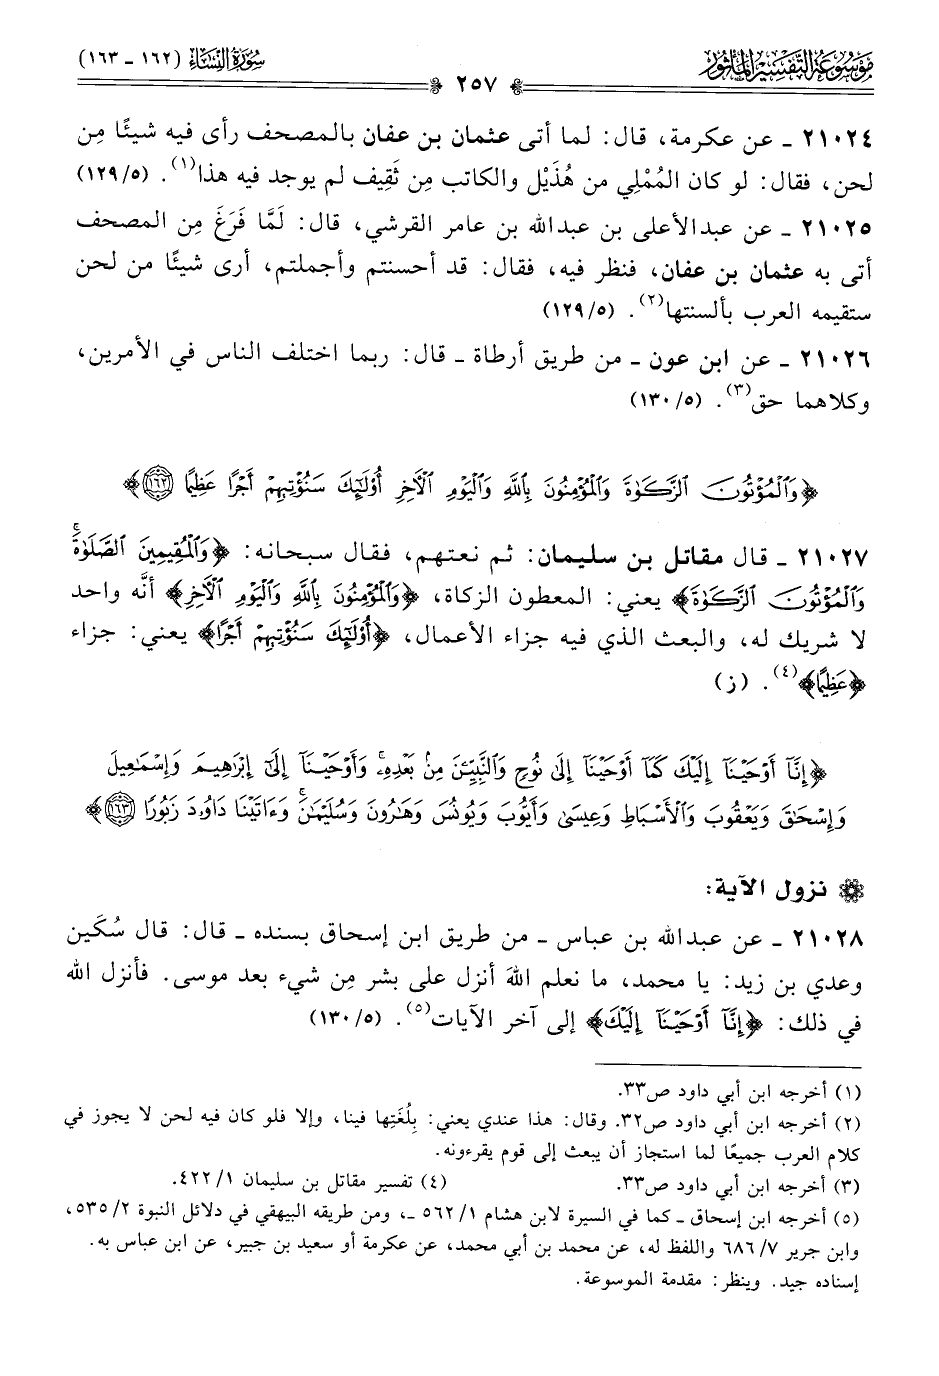 موسوعة التفسير المأثور
سورة النساء (١٦٢ ـ ١٦٣)
٢٥٧
٢١٠٢٤ ـ عن عكرمة، قال: لما أتى عثمان بن عفان بالمصحف رأى فيه شيئًا مِن
لحن، فقال: لو كان المُمْلِي من هُذَيْل والكاتب مِن ثَقِيف لم يوجد فيه هذا(١). (١٢٩/٥)
٢١٠٢٥ ـ عن عبدالأعلى بن عبدالله بن عامر القرشي، قال: لَمَّا فَرَغَ مِن المصحف
أتى به عثمان بن عفان، فنظر فيه، فقال: قد أحسنتم وأجملتم، أرى شيئًا من لحن
ستقيمه العرب بألسنتها(٢). (١٢٩/٥)
٢١٠٢٦ ـ عن ابن عون ـ من طريق أرطاة ـ قال: ربما اختلف الناس في الأمرين،
وكلاهما حق(٣). (١٣٠/٥)
﴿وَٱلْمُؤْتُونَ ٱلزَّكَوٰةَ وَٱلْمُؤْمِنُونَ بِٱللَّهِ وَٱلْيَوْمِ ٱلْآخِرِ أُوْلَٰٓئِكَ سَنُؤْتِيهِمْ أَجْرًا عَظِيمًا ١٦٢﴾
٢١٠٢٧ ـ قال مقاتل بن سليمان: ثم نعتهم، فقال سبحانه: ﴿وَٱلْمُقِيمِينَ ٱلصَّلَوٰةَۚ
وَٱلْمُؤْتُونَ ٱلزَّكَوٰةَ﴾ يعني: المعطون الزكاة، ﴿وَٱلْمُؤْمِنُونَ بِٱللَّهِ وَٱلْيَوْمِ ٱلْآخِرِ﴾ أنَّه واحد
لا شريك له، والبعث الذي فيه جزاء الأعمال، ﴿أُوْلَٰٓئِكَ سَنُؤْتِيهِمْ أَجْرًا﴾ يعني: جزاء
﴿عَظِيمًا﴾(٤). (ز)
﴿إِنَّآ أَوْحَيْنَآ إِلَيْكَ كَمَآ أَوْحَيْنَآ إِلَىٰ نُوحٍ وَٱلنَّبِيِّـۧنَ مِنۢ بَعْدِهِۦۚ وَأَوْحَيْنَآ إِلَىٰٓ إِبْرَٰهِيمَ وَإِسْمَٰعِيلَ
وَإِسْحَٰقَ وَيَعْقُوبَ وَٱلْأَسْبَاطِ وَعِيسَىٰ وَأَيُّوبَ وَيُونُسَ وَهَٰرُونَ وَسُلَيْمَٰنَۚ وَءَاتَيْنَا دَاوُۥدَ زَبُورًا ١٦٣﴾
نزول الآية:
٢١٠٢٨ ـ عن عبدالله بن عباس ـ من طريق ابن إسحاق بسنده ـ قال: قال سُكَين
وعدي بن زيد: يا محمد، ما نعلم اللهَ أنزل على بشر مِن شيء بعد موسى. فأنزل الله
في ذلك: ﴿إِنَّآ أَوْحَيْنَآ إِلَيْكَ﴾ إلى آخر الآيات(٥). (١٣٠/٥)
(١) أخرجه ابن أبي داود ص٣٣.
(٢) أخرجه ابن أبي داود ص٣٢. وقال: هذا عندي يعني: بِلُغَتِها فينا، وإلا فلو كان فيه لحن لا يجوز في
كلام العرب جميعًا لما استجاز أن يبعث إلى قوم يقرءونه.
(٣) أخرجه ابن أبي داود ص٣٣. (٤) تفسير مقاتل بن سليمان ٤٢٢/١.
(٥) أخرجه ابن إسحاق ـ كما في السيرة لابن هشام ٥٦٢/١ ـ، ومن طريقه البيهقي في دلائل النبوة ٥٣٥/٢،
وابن جرير ٦٨٦/٧ واللفظ له، عن محمد بن أبي محمد، عن عكرمة أو سعيد بن جبير، عن ابن عباس به.
إسناده جيد. وينظر: مقدمة الموسوعة.